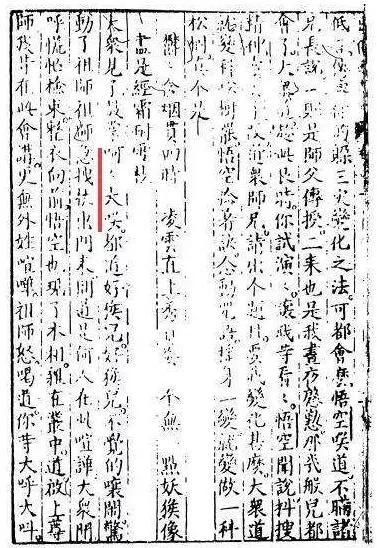 低言的躲三災變化之法可都會麼悟空笑道不瞞諸
兄長說一則是師父傳授二來也是我晝夜慇懃那幾般兒都
會了大眾道趁此良時你試演演讓我等看看悟空聞說抖搜
精神道眾師兄請出个題目要我變化甚麼大眾道
就變科松樹罷悟空捻著訣念動咒語搖身一變就變做一科
松樹真个是
鬱含烟貫四時　凌雲直上秀貞姿　全無一點妖猴像
盡是經霜耐雪枝
大眾見了鼓掌呵呵大笑都道好猴兒好猴兒不覺的嚷鬧驚
動了祖師祖師急拽杖出門來問道是何人在此喧譁大眾聞
呼慌忙檢束整衣向前悟空也現了本相雜在叢中道啟上尊
師我等在此會講更無外姓喧嘩祖師怒喝道你等大呼大叫